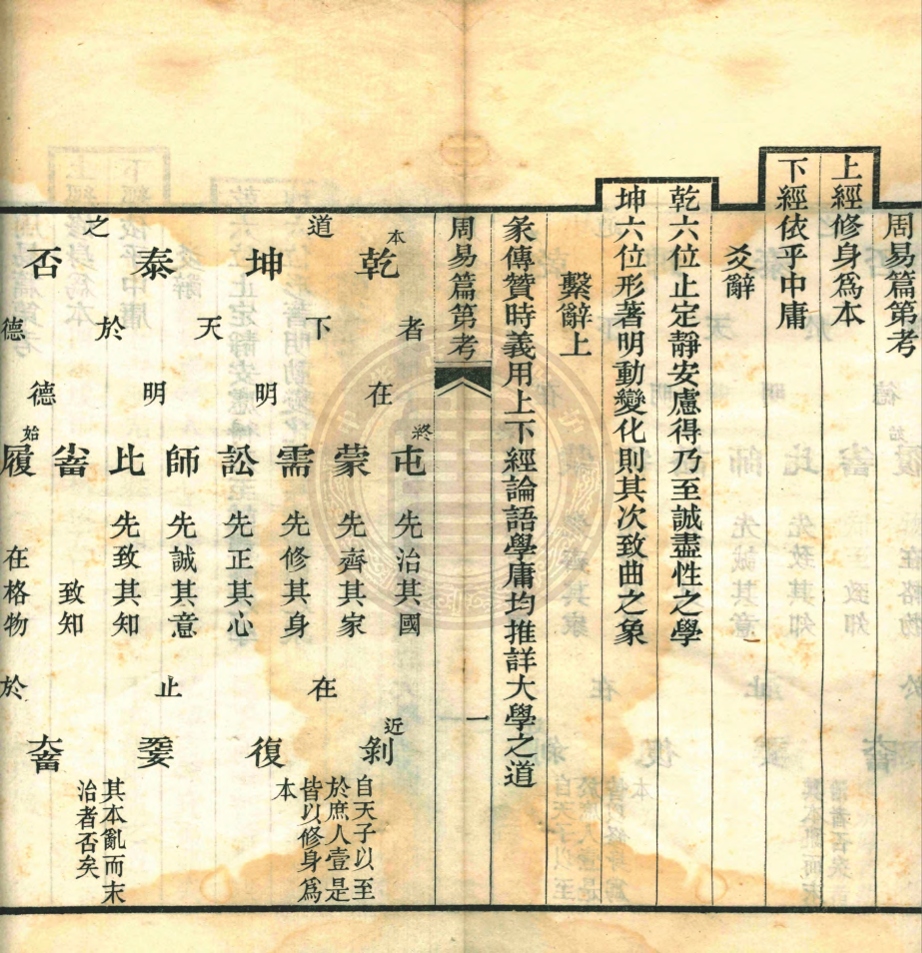 周易篇第考
上經修身爲本
下經依乎中庸
爻辭
乾六位止定靜安慮得乃至誠盡性之學
坤六位形著明動變化則其次致曲之象
繫辭上
彖傳贊時義用上下經論語學庸均推詳大學之道
周易篇第考 一
本 道 之
乾 坤 泰 否
者 下 天 於 德
在 明 明 德
終 始
屯 蒙 需 訟 師 比 小畜 履
先治其國
先齊其家
先修其身
先正其心
先誠其意
先致其知
致知
在格物
在 止 於
近
剝 復 无妄 大畜
自天子以至
於庶人壹是
皆以修身爲
本
其本亂而末
治者否矣